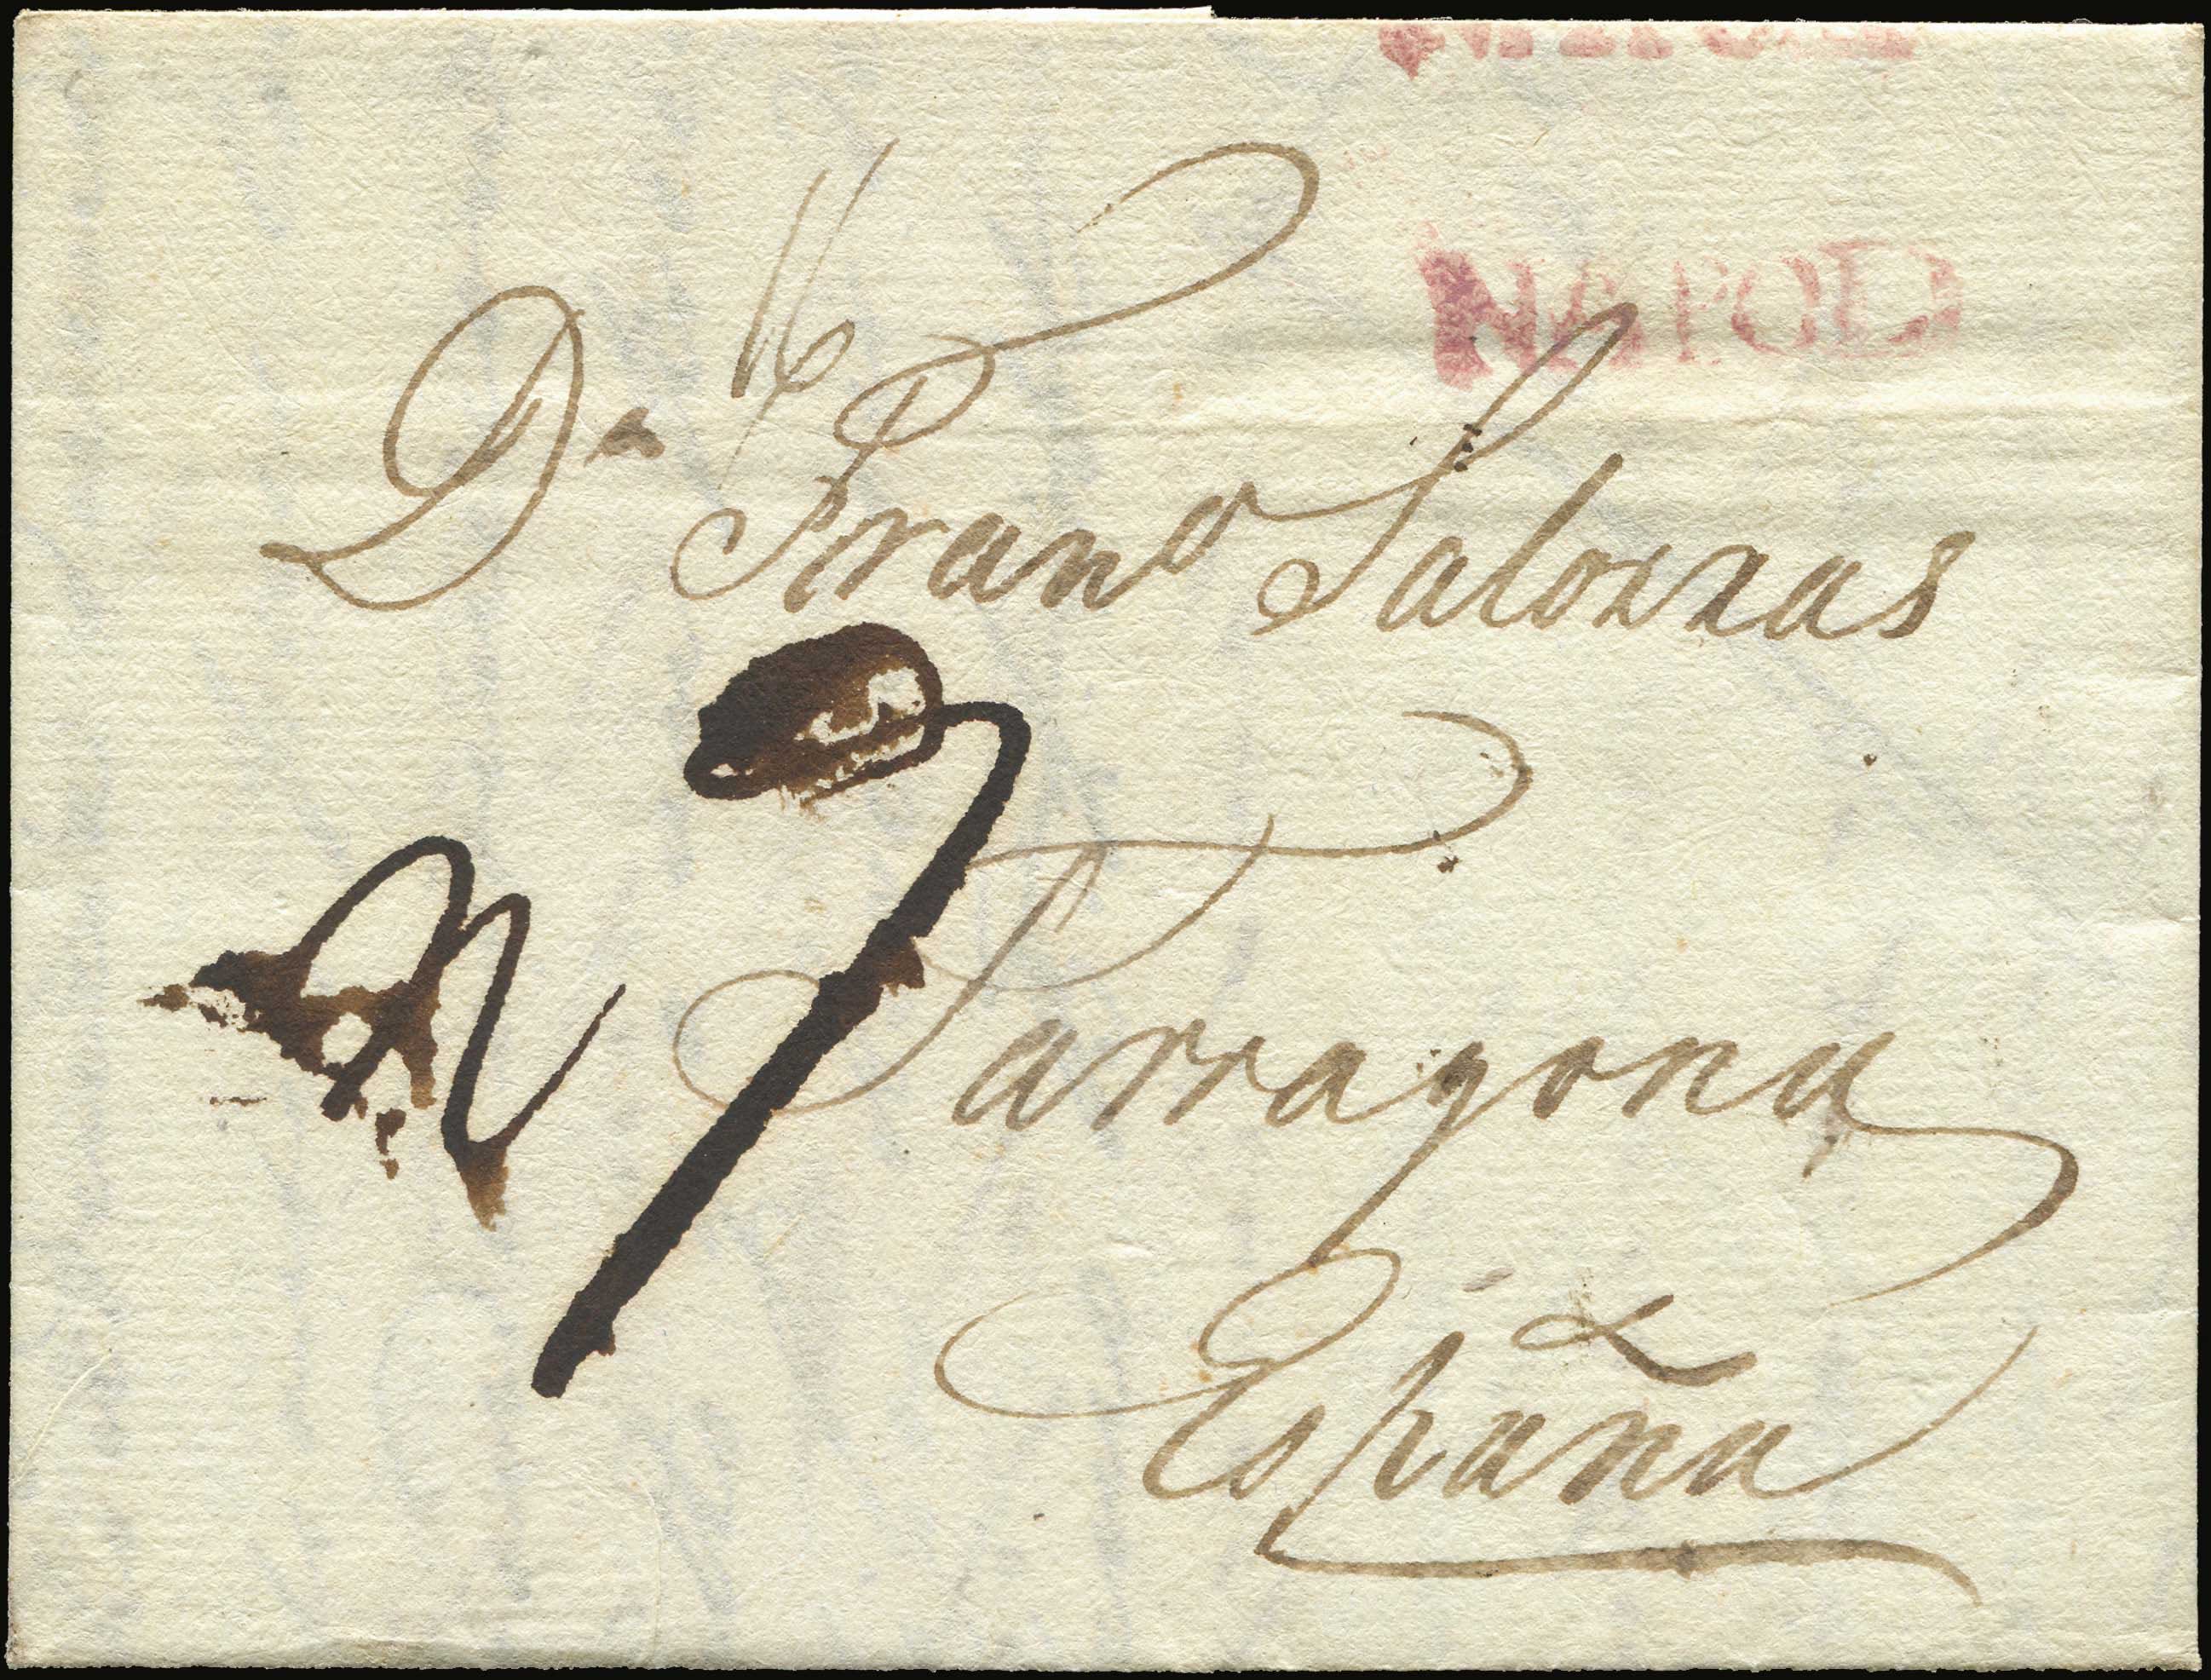 NAPOLI
16
Dn Franco Salozzas
Tarragona
España